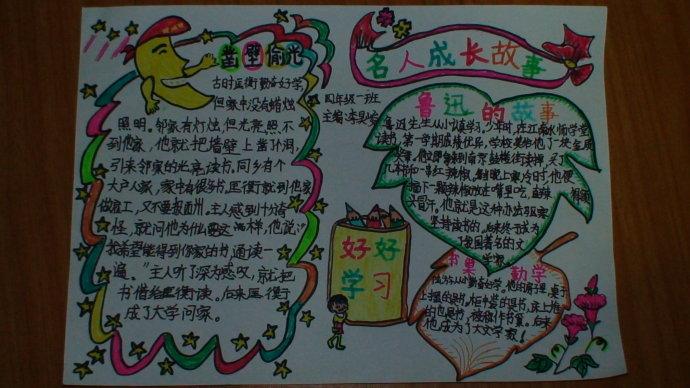 凿壁偷光
古时匡衡勤奋好学,
但家中没有蜡烛
照明。邻家有灯烛,但光亮照不
到他家,他就把墙壁上凿个洞,
引来邻家的光亮读书。同乡有个
大户人家,家中有很多书。匡衡就到他家
做雇工,又不要报酬。主人感到十分奇
怪,就问他为什么要这样,他说:“
我希望能得到你家的书,通读一
遍。”主人听了深为感叹,就把
书借给匡衡读。后来匡衡
成了大学问家。
名人成长故事
四年级一班
主编:李昊
鲁迅的故事
鲁迅先生从小认真学习。少年时,在江南水师学堂
读书,第一学期成绩优异,学校奖给他了一块金质
奖章。他立即拿到南京鼓楼街头卖掉,买了
几本书和一串红辣椒。每到晚上寒冷时,他便
摘下一颗辣椒放在嘴里吃,直辣
额头冒汗。他就是这种办法驱寒
坚持读书的。后来终于成为
我国著名的文
学家
好好
学习
书巢勤学
陆游从小勤奋好学。他的房子里,桌子
上摆的是书,柜中装的是书,床上堆
的也是书,被称作书巢。后来
他成为了大文学家!